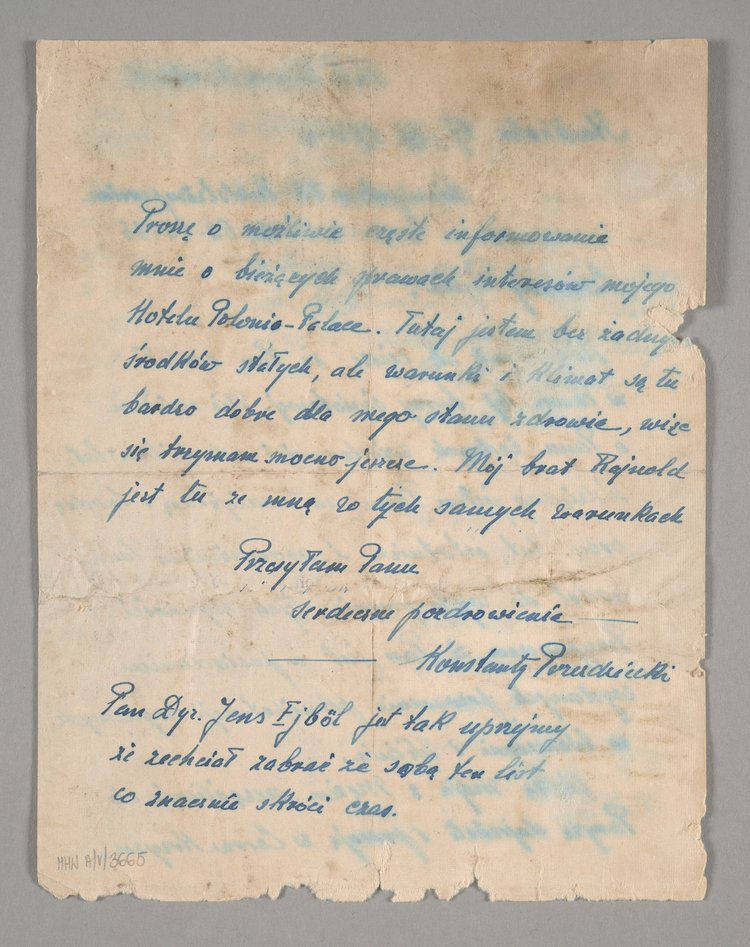 Proszę o możliwie częste informowanie
mnie o bieżących sprawach interesów mojego
Hotelu Polonia-Palace. Tutaj jestem bez żadny
środków stałych, ale warunki i klimat są tu
bardzo dobre dla mego stanu zdrowia, więc
się trzymam mocno jeszcze. Mój brat Rajnold
jest tu ze mną w tych samych warunkach
Przesyłam Panu
serdeczne pozdrowienia
Konstanty Przezdziecki
Pan Dyr. Jens Ejböl jest tak uprzejmy
że zechciał zabrać ze sobą ten list
co znacznie skróci czas.
MHW A/V/3665